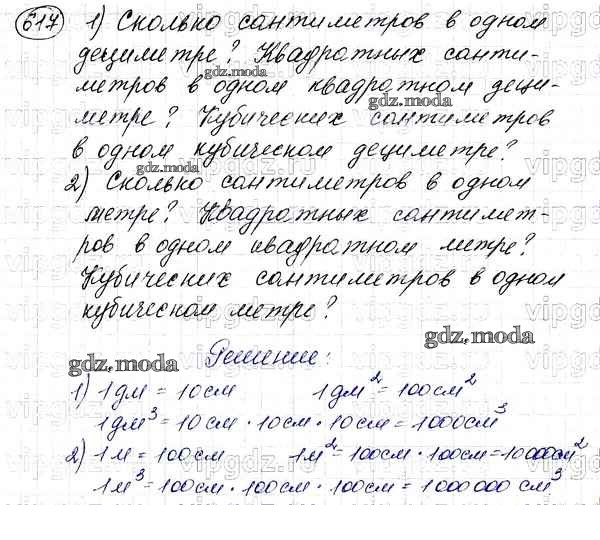 617 1) Сколько сантиметров в одном
дециметре? Квадратных санти-
метров в одном квадратном деци-
метре? Кубических сантиметров
в одном кубическом дециметре?
2) Сколько сантиметров в одном
метре? Квадратных сантимет-
ров в одном квадратном метре?
Кубических сантиметров в одном
кубическом метре?
Решение:
1) 1 дм = 10 см 1 дм² = 100 см²
1 дм³ = 10 см · 10 см · 10 см = 1000 см³
2) 1 м = 100 см 1 м² = 100 см · 100 см = 10000 см²
1 м³ = 100 см · 100 см · 100 см = 1000 000 см³
gdz.moda
gdz.moda
gdz.moda
gdz.moda